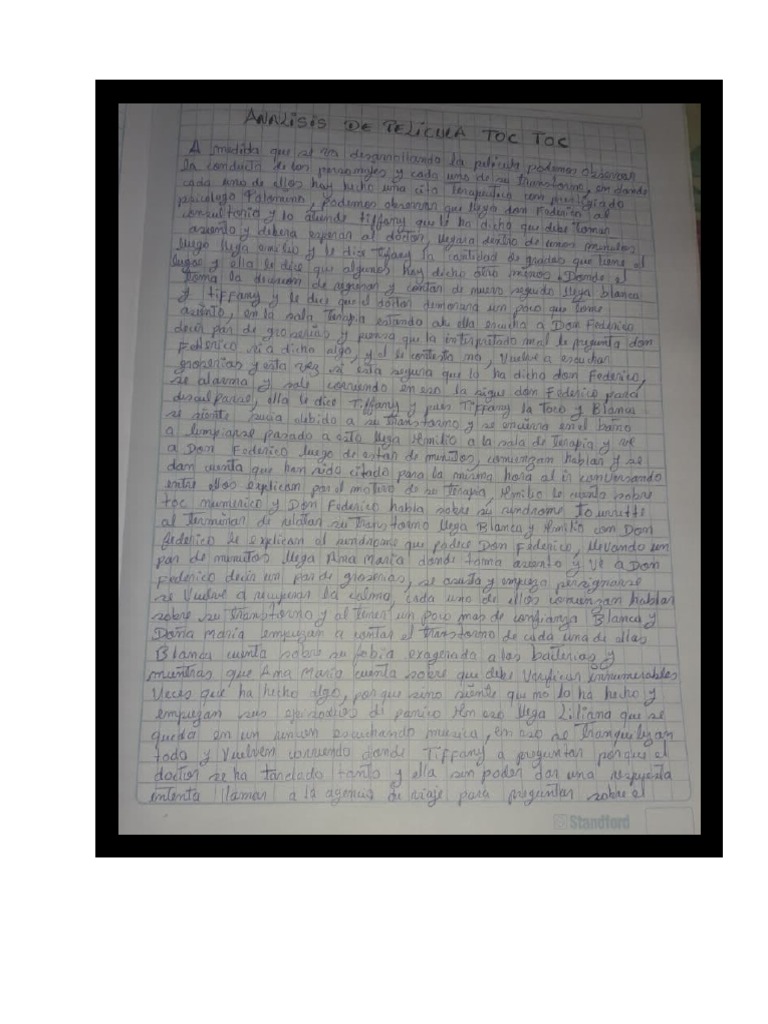 ANALISIS DE PELICULA TOC TOC
A medida que se va desarrollando la pelicula podemos observar
la conducta de los personajes y cada uno de su transtorno, en donde
cada uno de ellos hay hecho una cita terapeutica con prestigiado
psicologo Palomero, podemos observar que llega don Federico al
consultorio y lo atiende tiffany que le ha dicho que debe tomar
asiento y debera esperar al doctor, llegara dentro de unos minutos
luego llega emilio y le dice Tifany la cantidad de gradas que tiene el
lugar y ella le dice que algunos hay dicho otro menos. Donde el
toma la decision de regresar y contar de nuevo seguido llega blanca
y tiffany y le dice que el doctor demorara un poco que tome
asiento, en la sala terapia estando ahi ella escucha a Don Federico
decir par de groserias y piensa que la interpretado mal le pregunta don
Federico si a dicho algo, y el le contesta no, Vuelve a escuchar
groserias y esta vez si esta segura que lo ha dicho don Federico,
se alarma y sale corriendo en eso la sigue don Federico para
disculparse, ella le dice Tiffany y pues Tiffany la Toco y Blanca
se siente sucia debido a su transtorno y se encierra en el baño
a limpiarse pasado a esto llega Emilio a la sala de Terapia y ve
a Don Federico luego de estar de minutos, comienzan hablar y se
dan cuenta que han sido citado para la misma hora al ir conversando
entre ellos explican por el motivo de su terapia, Emilio le cuenta sobre
toc numerico y Don Federico habla sobre su sindrome tourette
al terminar de relatar su transtorno llega Blanca y Emilio con Don
federico le explican el sindrome que padece Don Federico, llevando un
par de minutos llega Ana Maria donde toma asiento y ve a Don
Federico decir un par de groserias, se asusta y empieza persignarse
se vuelve a recuperar la calma, cada uno de ellos comienzan hablar
sobre su transtorno y al tener un poco mas de confianza Blanca y
Doña Maria empiezan a contar el transtorno de cada una de ellas
Blanca cuenta sobre su fobia exagerada a las bacterias y
mientras que Ana Maria cuenta sobre que debe Verificar innumerables
Veces que ha hecho algo, porque sino siente que no lo ha hecho y
empiezan sus episodios de panico En eso llega Liliana que se
queda en un rincon escuchando musica, en eso se tranquilizan
todo y vuelven corriendo donde Tiffany a preguntar porque el
doctor se ha tardado tanto y ella sin poder dar una respuesta
intenta llamar a la agencia de viaje para preguntar sobre el
Standford